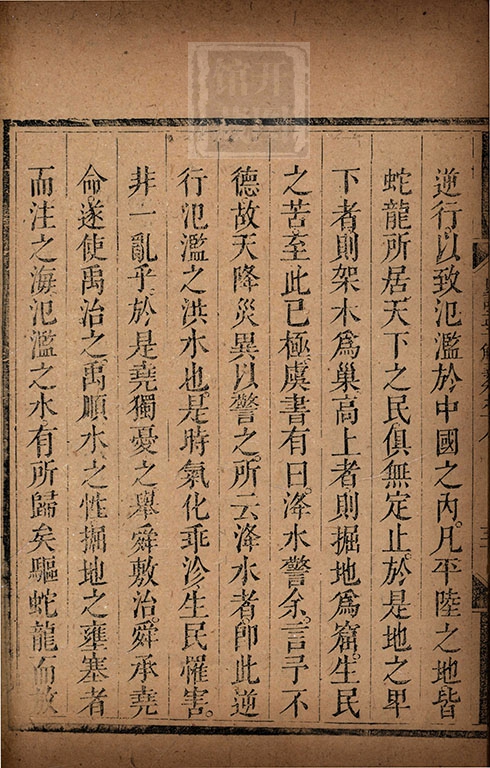 逆行以致氾濫於中國之內。凡平陸之地皆
蛇龍所居天下之民俱無定止。於是地之卑
下者則架木爲巢高上者則掘地爲窟。生民
之苦至此已極虞書有曰洚水警余。言予不
德故天降災異以警之。所云洚水者。卽此逆
行氾濫之洪水也。是時氣化乖沴生民罹害。
非一亂乎於是堯獨憂之舉舜敷治。舜承堯
命。遂使禹治之。禹順水之性掘地之壅塞者
而注之海氾濫之水有所歸矣驅蛇龍而放